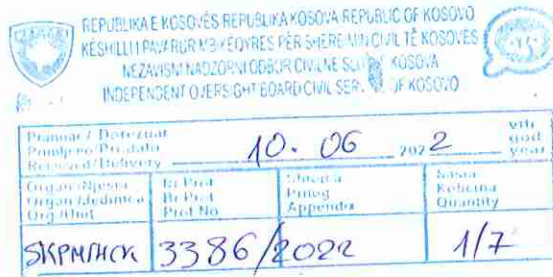 REPUBLIKA E KOSOVËS REPUBLIKA KOSOVA REPUBLIC OF KOSOVO
KËSHILLI I PAVARUR MBIKËQYRËS PËR SHËRBIMIN CIVIL TË KOSOVËS
NEZAVISNI NADZORNI ODBOR CIVILNE KOSOVA
INDEPENDENT OVERSIGHT BOARD CIVIL SER. OF KOSOVO
Pranuar / Dorëzuar
Primljeno/Predato
Received/Delivery
10. 06 2022
viti
god
year
Organ/Njesia
Organ/Jedinica
Org/Unit
Nr Prot
Br Prot
Prot No
Shtojca
Prilog
Appendix
Sasia
Kolicina
Quantity
3386/2022
1/7